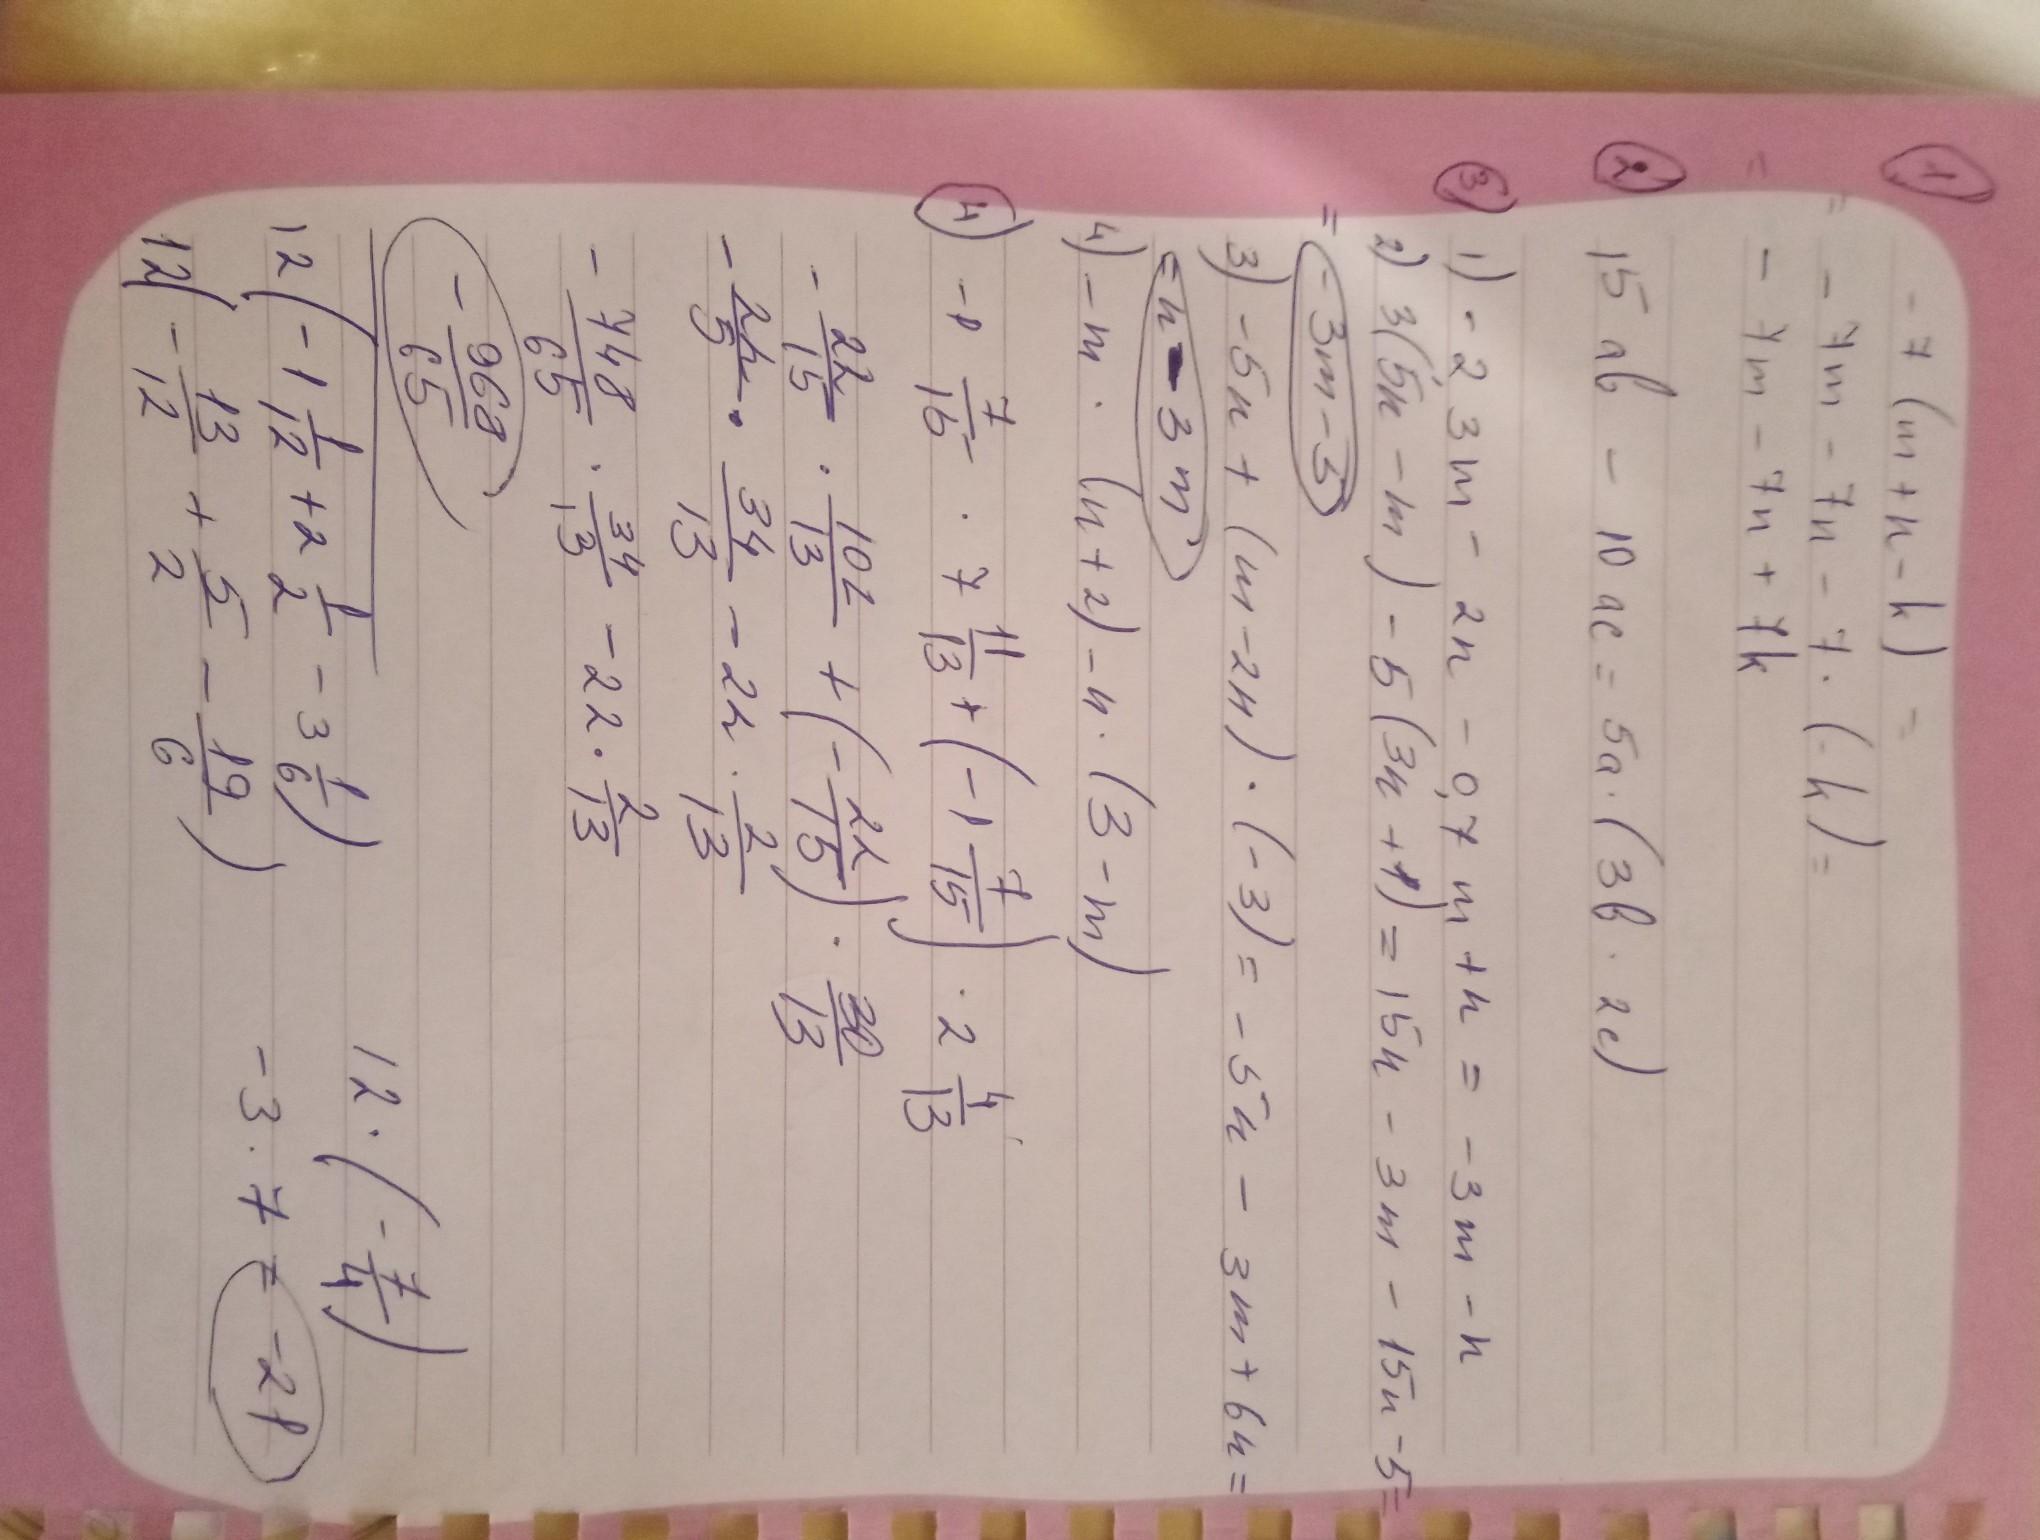 ① -7(m+n-k) =
= -7m - 7n - 7·(-k) =
= -7m - 7n + 7k
② 15ab - 10ac = 5a·(3b·2c)
③ 1) -2,3m - 2n - 0,7m + n = -3m - n
2) 3(5n - m) - 5(3n + 1) = 15n - 3m - 15n - 5 =
= -3m - 5
3) -5n + (m - 2n)·(-3) = -5n - 3m + 6n =
= n - 3m
4) -m·(n+2) - n·(3-m)
④ -1 7/15 · 7 11/13 + (-1 7/15) · 2 4/13
-22/15 · 102/13 + (-22/15) · 30/13
-22/5 · 34/13 - 22 · 2/13
-748/65 · 34/13 - 22 · 2/13
-968/65
12(-1 1/12 + 2 1/2 - 3 1/6) 12·(-7/4)
12(-13/12 + 5/2 - 19/6) -3·7 = -21